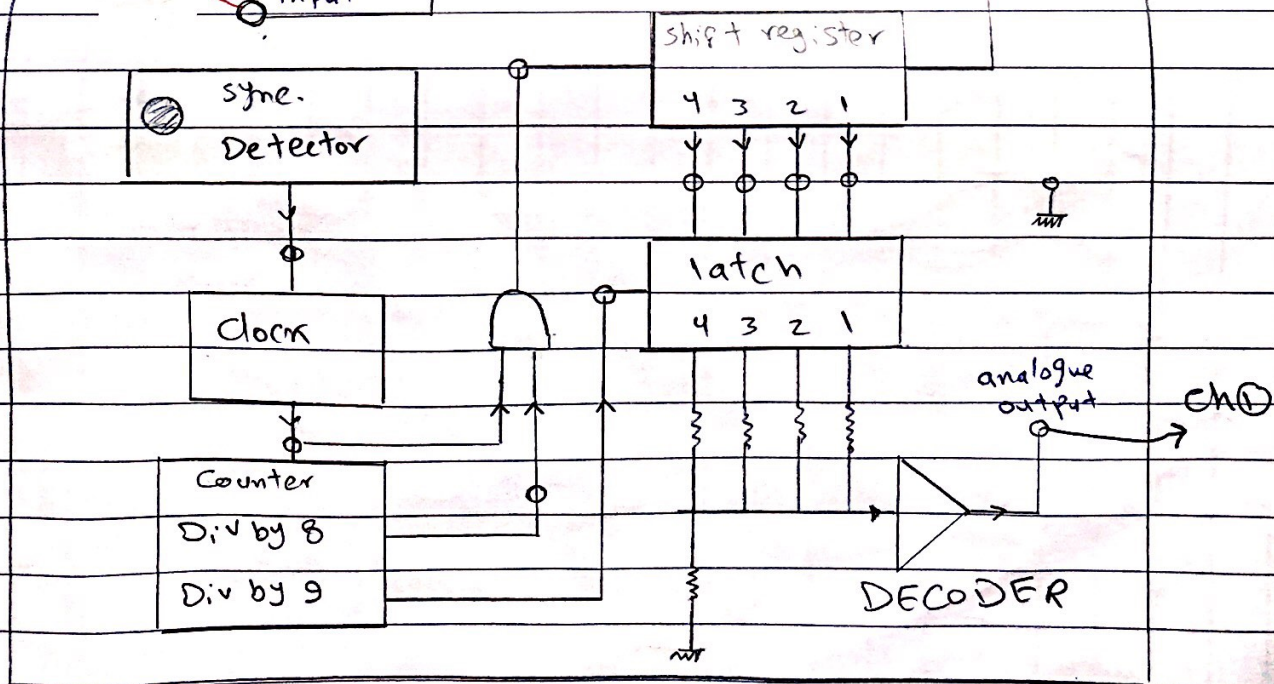 input
shift register
4 3 2 1
sync.
Detector
latch
4 3 2 1
Clock
analogue
output
ch①
Counter
Div by 8
Div by 9
DECODER